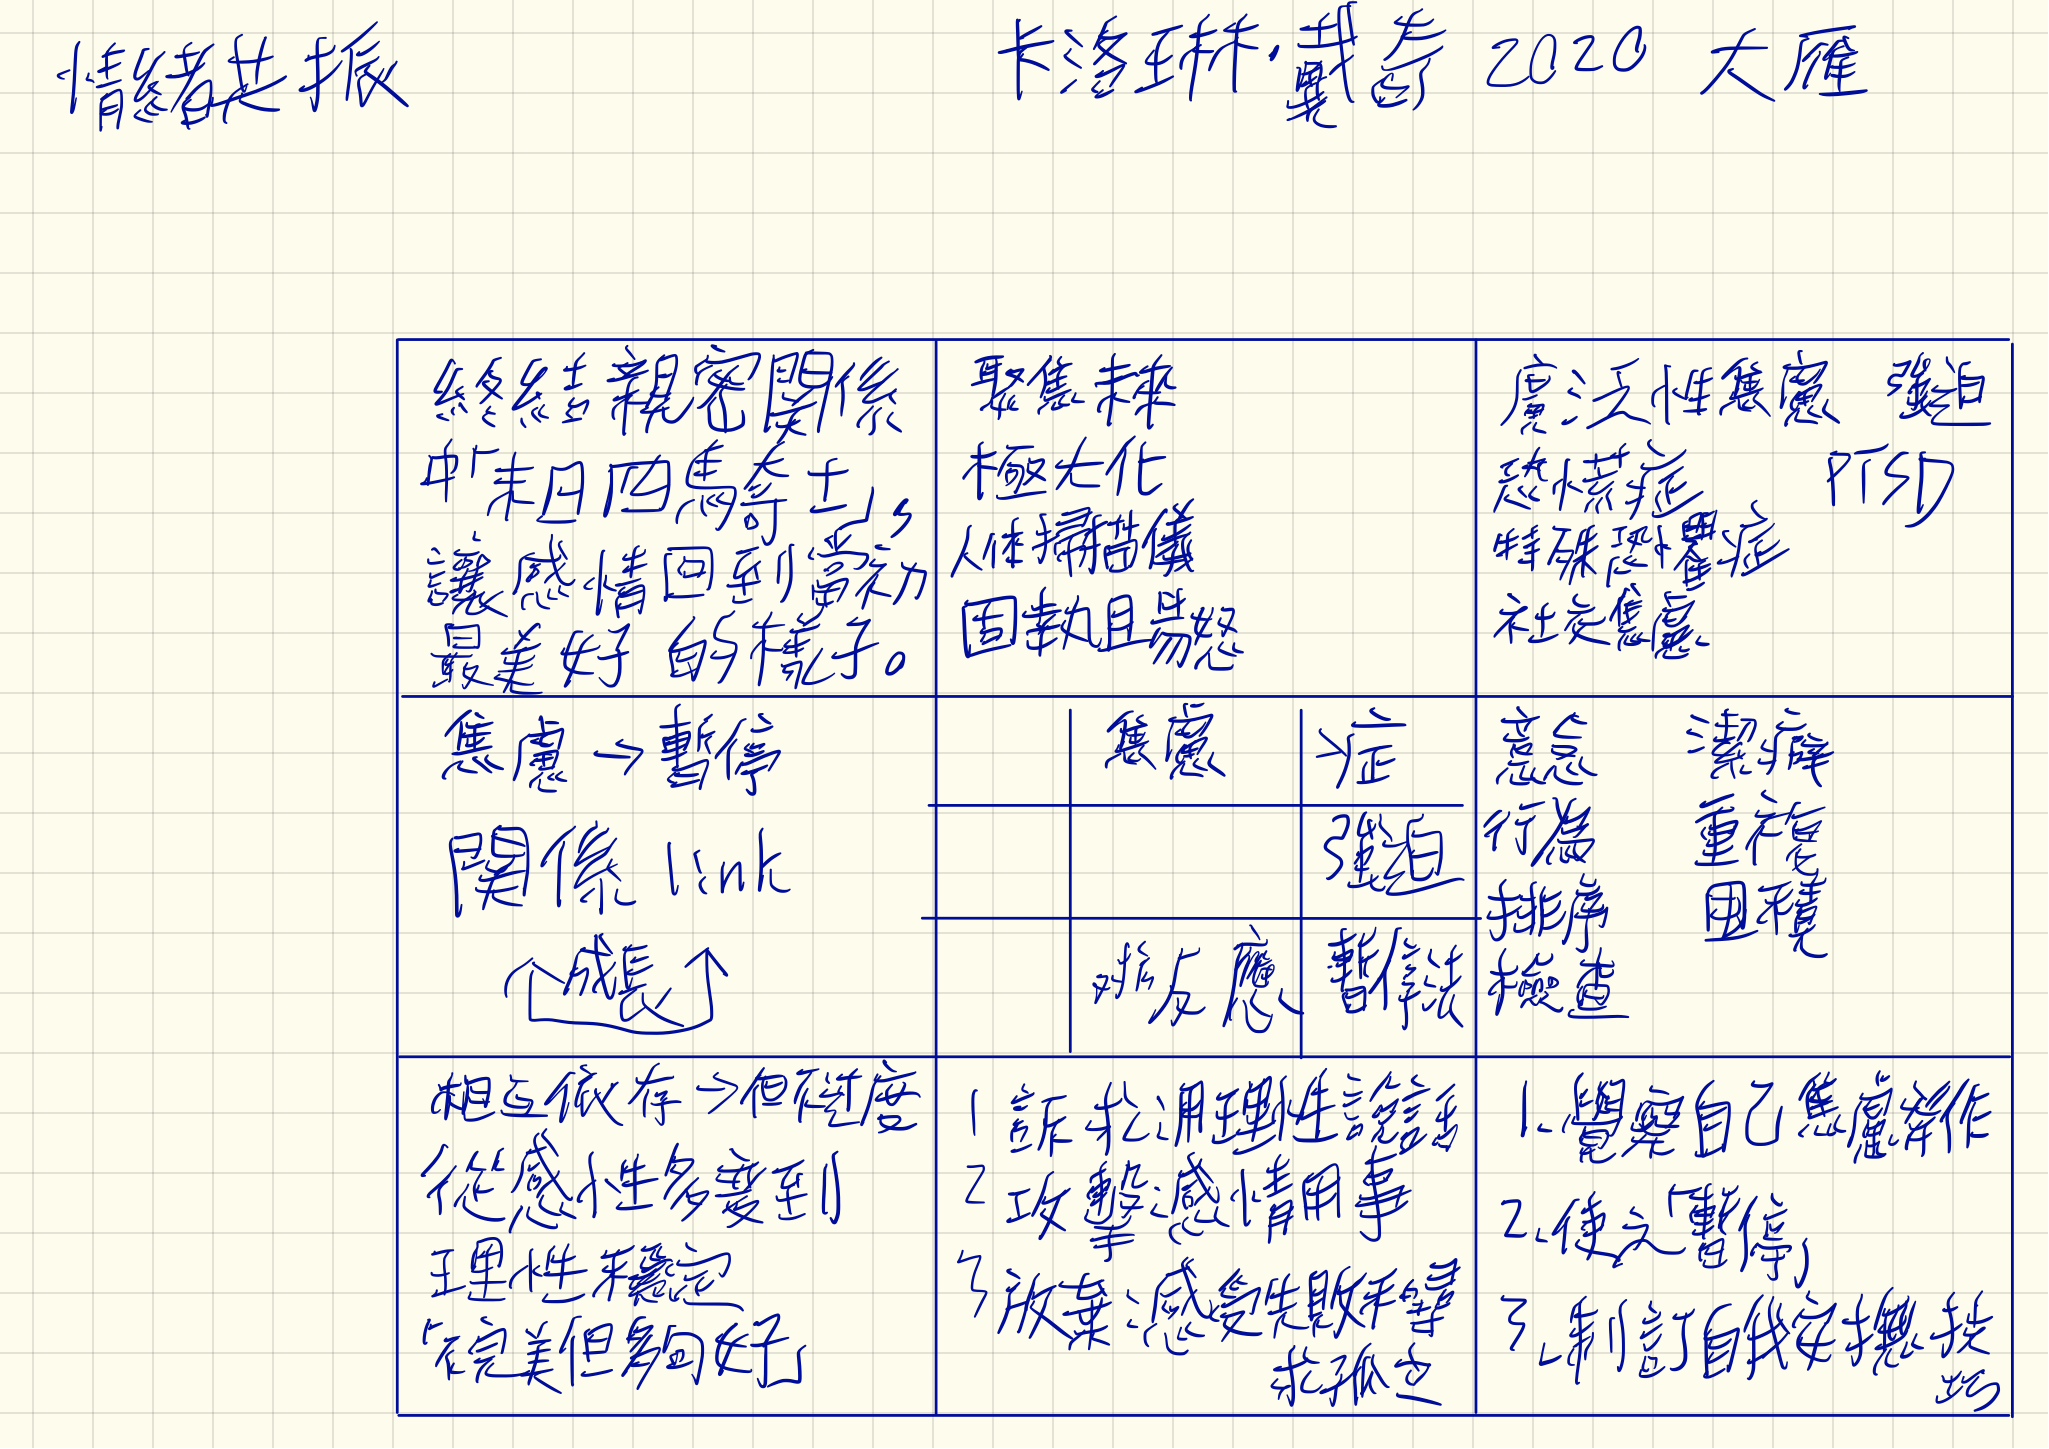 情緒共振
卡洛琳·戴奇 2020 大雁
終結親密關係
中「末日四馬奇士」,
讓感情回到當初
最美好的樣子。
聚焦未來
極大化
人体掃描儀
固執且易怒
廣泛性焦慮 強迫
恐慌症 PTSD
特殊恐懼症
社交焦慮
焦慮→暫停
關係 link
成長
焦慮 →症
強迫
反應 暫停法
意念 潔癖
行為 重複
排序 囤積
檢查
相互依存→但 度
從感性多變到
理性穩定
「不完美但夠好」
1 訴 用理性說話
2 攻擊 感情用事
3 放棄 感受失敗和尋
求孤立
1. 覺察自己焦慮發作
2. 使之「暫停」
3. 制訂自我安撫技
巧